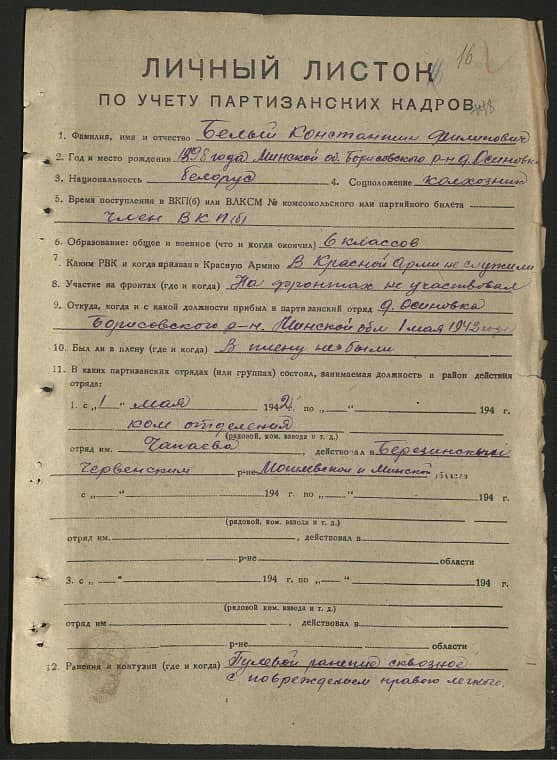 16
ЛИЧНЫЙ ЛИСТОК
ПО УЧЕТУ ПАРТИЗАНСКИХ КАДРОВ
1. Фамилия, имя и отчество Белый Константин Филипович
2. Год и место рождения 1898 года Минской об. Борисовского р-н д. Осиновк
3. Национальность белорус 4. Соцположение колхозник
5. Время поступления в ВКП(б) или ВЛКСМ № комсомольского или партийного билета
Член ВКП(б)
6. Образование: общее и военное (что и когда окончил) 6 классов
7. Каким РВК и когда призван в Красную Армию В Красной Арми не служили
8. Участие на фронтах (где и когда) На фронтах не участвовал
9. Откуда, когда и с какой должности прибыл в партизанский отряд д. Осиновка
Борисовского р-н. Минской обл 1 мая 1942 года
10. Был ли в плену (где и когда) В плену не был
11. В каких партизанских отрядах (или группах) состоял, занимаемая должность и район действия
отряда:
1. с „1 “ мая 1942 г. по „ “ 194 г.
ком отделения
(рядовой, ком. взвода и т. д.)
отряд им. Чапаева , действовал в Березинский
Червенским р-не Могилевской и Минской области
с „ “ 194 г. по „ “ 194 г.
(рядовой, ком. взвода и т. д.)
отряд им. , действовал в
р-не области
3. с „ “ 194 г. по „ “ 194 г.
(рядовой ком. взвода и т. д.)
отряд им , действовал в
р-не области
12. Ранения и контузии (где и когда) Пулевой ранение сквозное
с повреждением правого легкого.